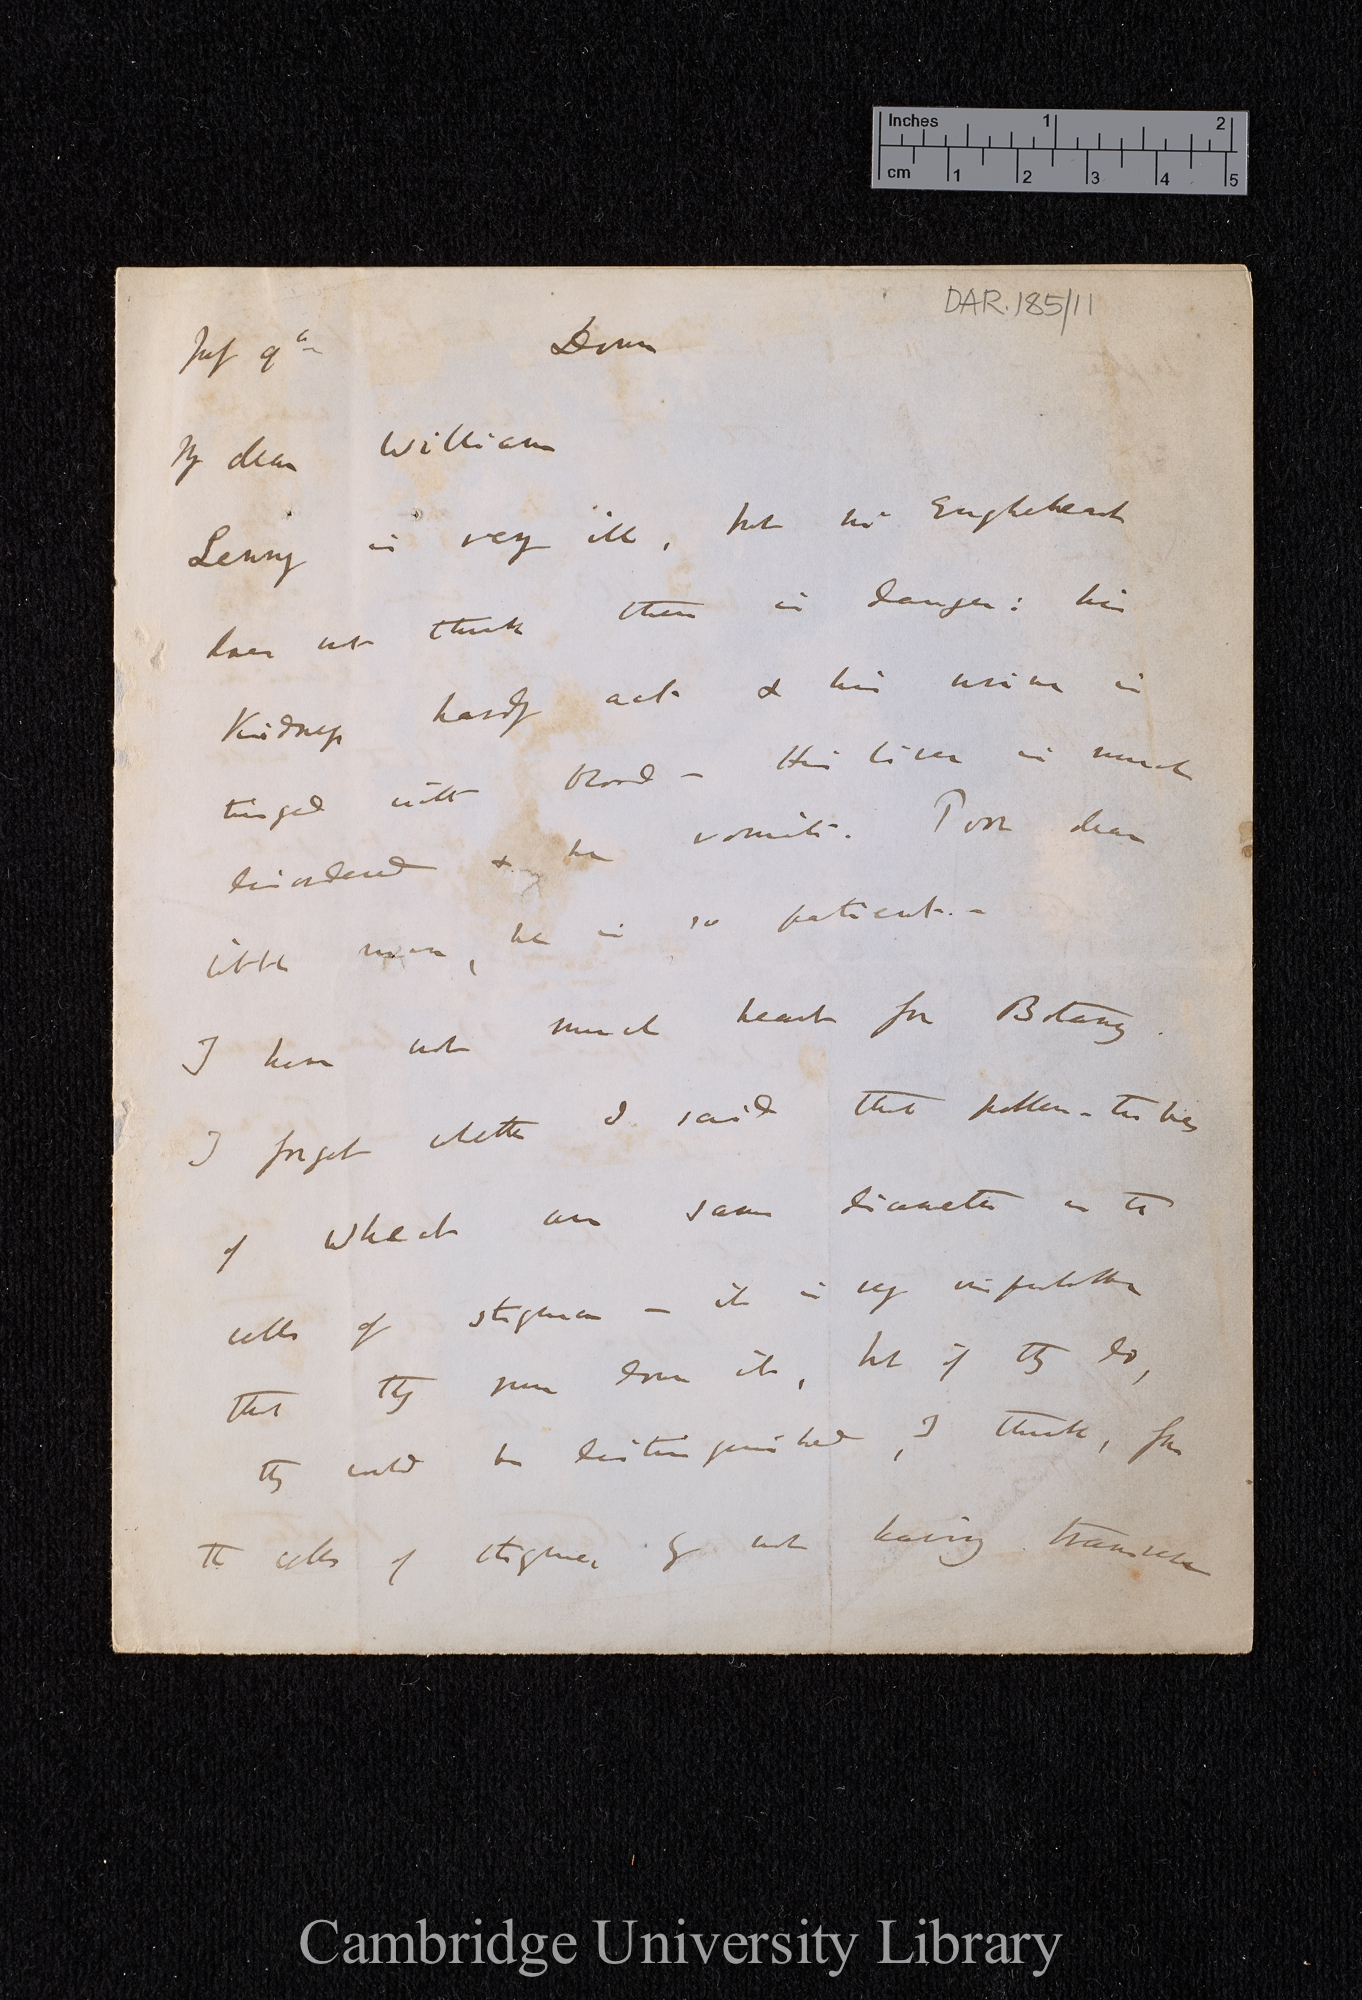 Inches 1 2
cm 1 2 3 4 5
DAR.185/11
July 9th Down
My dear William
Lenny is very ill, but Mr Engleheart
does not think there is danger: his
Kidneys hardly act & his urine is
tinged with blood — His liver is much
disordered & he vomits. Poor dear
little man, he is so patient. —
I have not much heart for Botany.
I forget whether I said that pollen-tubes
of Wheat are same diameter as the
cells of stigma — it is very improbable
that they run down it, but if they do,
they could be distinguished, I think, from
the cells of stigma by not having transverse
Cambridge University Library